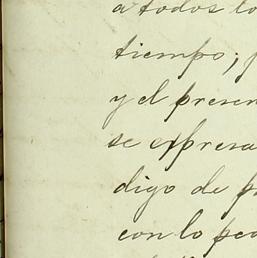 a todos lo
tiempo; p
y el presen
se expresa
digo de p
con lo ped